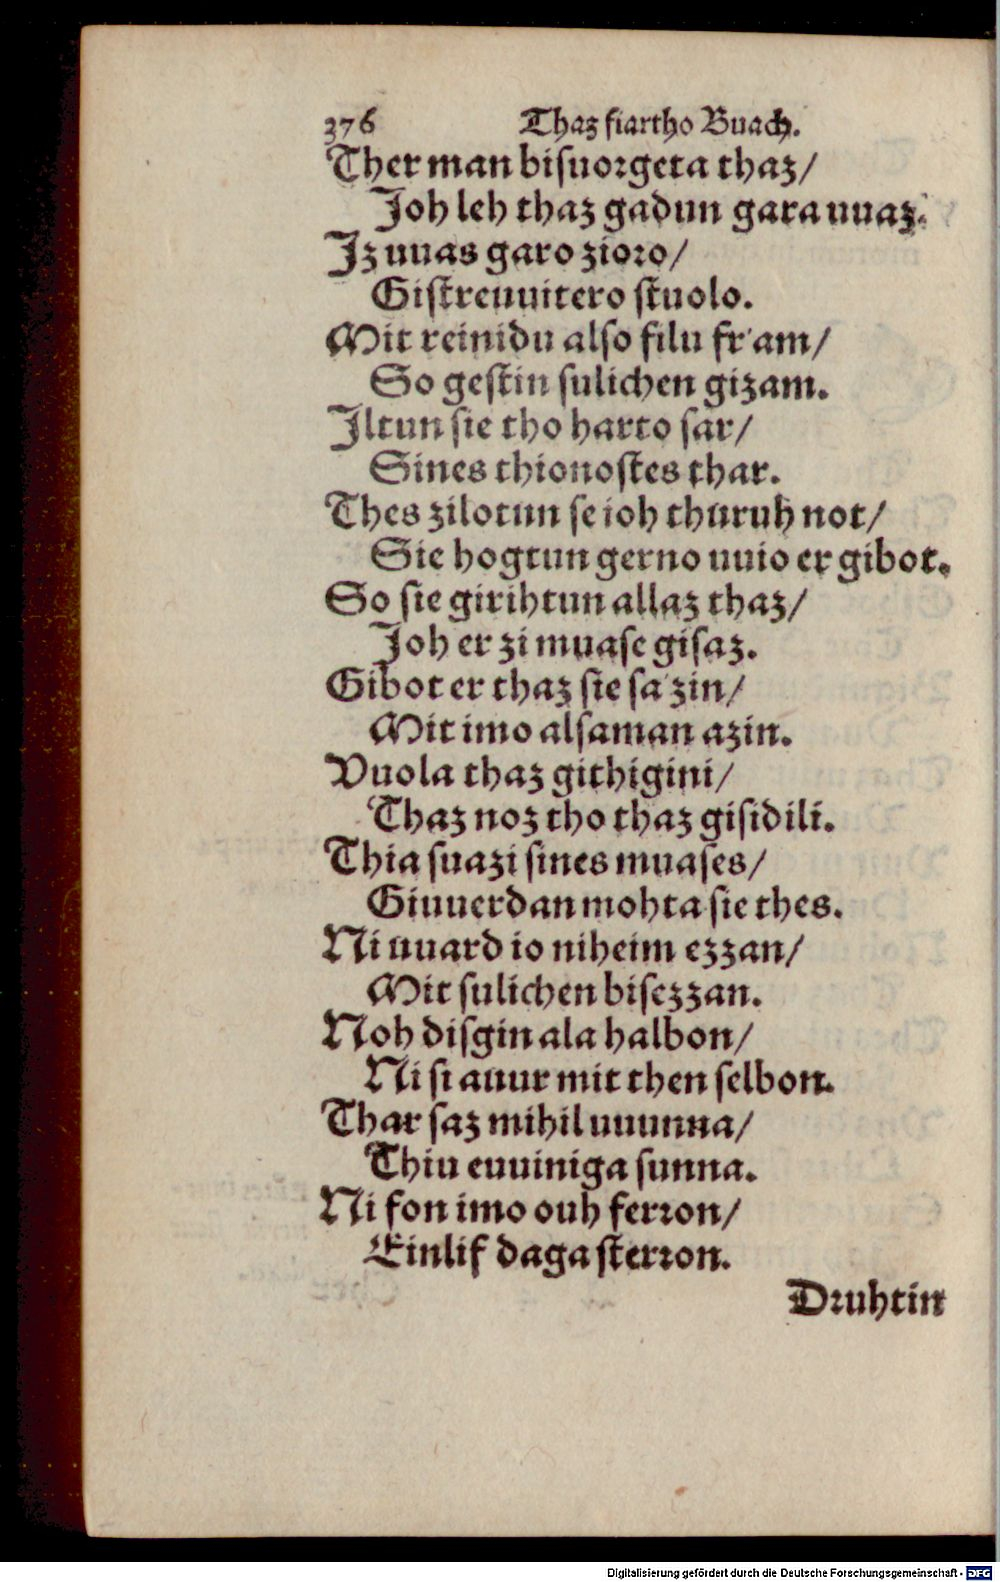 376 Thaz fiartho Buach.
Ther man bisuorgeta thaz/
Joh leh thaz gadun gara uuaz.
Jz uuas garo zioro/
Gistreuuitero stuolo.
Mit reinidu also filu fram/
So gestin sulichen gizam.
Jltun sie tho harto sar/
Sines thionostes thar.
Thes zilotun se ioh thuruh not/
Sie hogtun gerno uuio er gibot.
So sie girihtun allaz thaz/
Joh er zi muase gisaz.
Gibot er thaz sie sazin/
Mit imo alsaman azin.
Vuola thaz githigini/
Thaz noz tho thaz gisidili.
Thia suazi sines muases/
Giuuerdan mohta sie thes.
Ni uuard io niheim ezzan/
Mit sulichen bisezzan.
Noh disgin ala halbon/
Ni si auur mit then selbon.
Thar saz mihil uuunna/
Thiu euuiniga sunna.
Ni fon imo ouh ferron/
Einlif daga sterron.
Druhtin
Digitalisierung gefördert durch die Deutsche Forschungsgemeinschaft - DFG